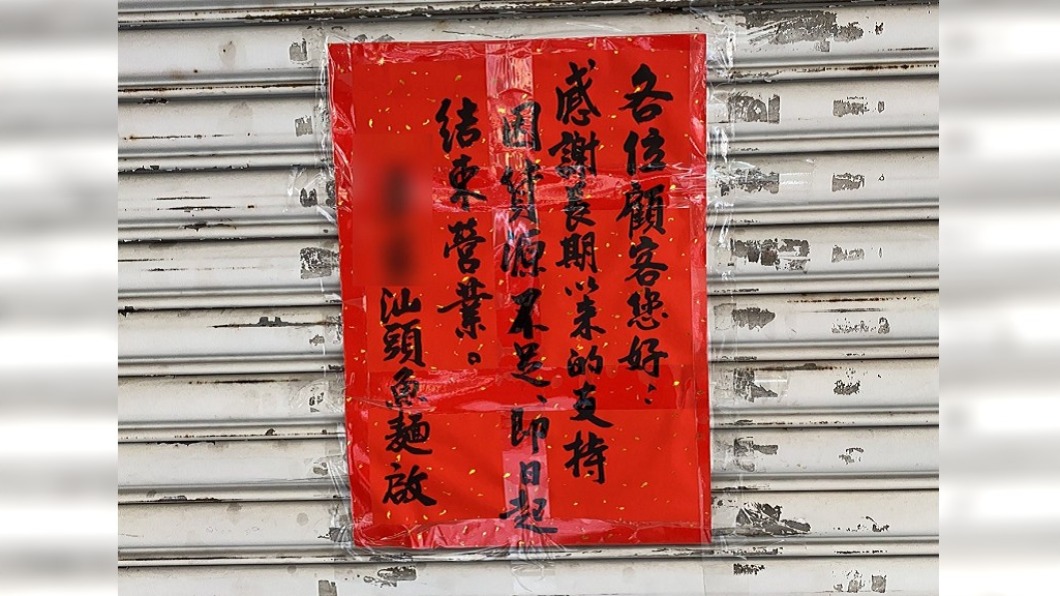 各位顧客您好：
感謝長期以來的支持
因貨源不足、即日起
結束營業。
汕頭魚麵啟